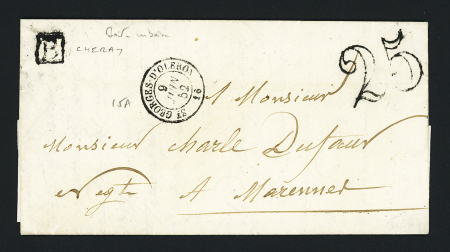 B
CHERAY
15A
ST GEORGES-D'OLERON
9 JUIN 52
16
25
A Monsieur
Monsieur Charle Dufaur
Negt A Marennes